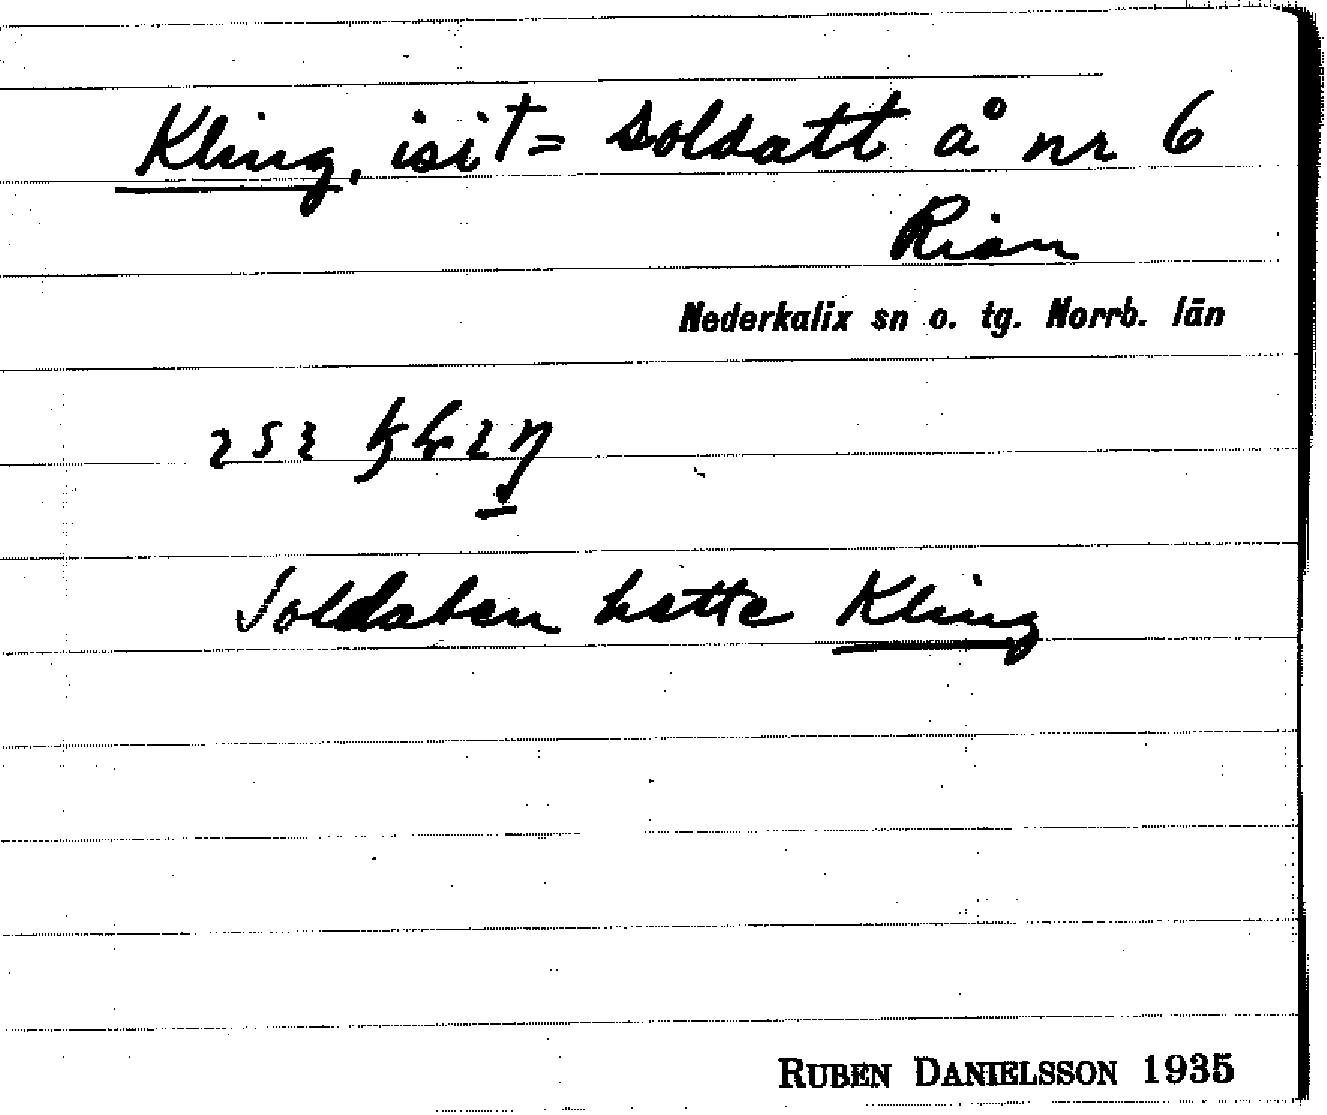 Kling, isit = soldatt å nr 6
Rian
Nederkalix sn o. tg. Norrb. län
Soldaten hette Kling
RUBEN DANIELSSON 1935